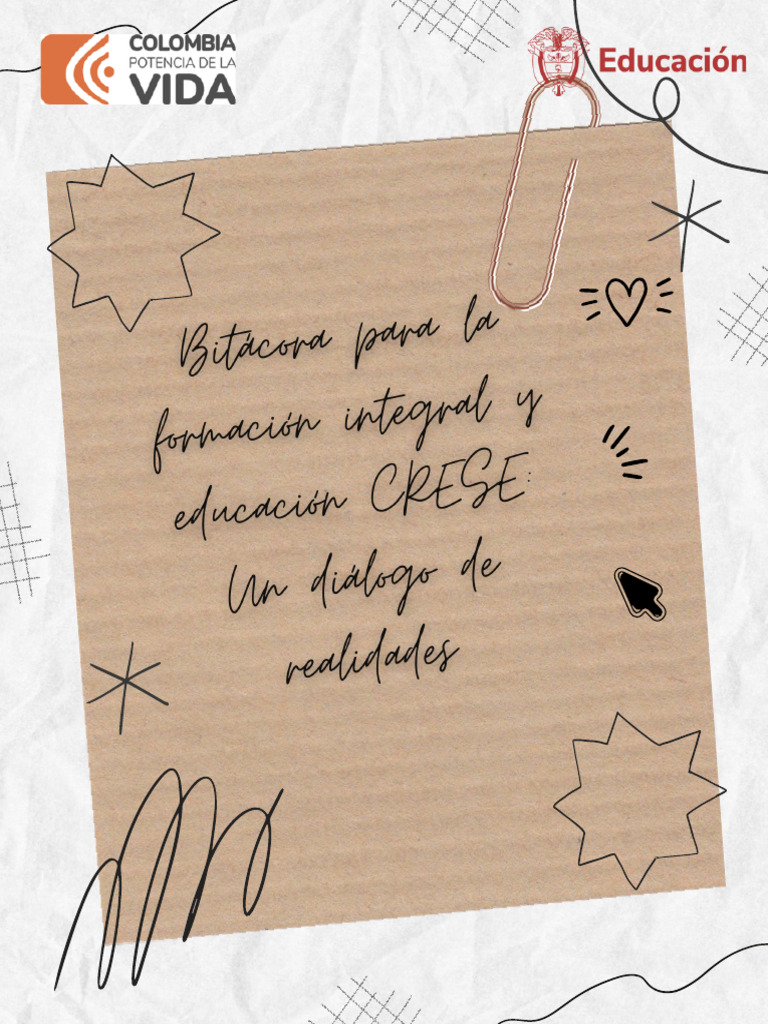 COLOMBIA
POTENCIA DE LA
VIDA
Educación
Bitácora para la
formación integral y
educación CRESE:
Un diálogo de
realidades